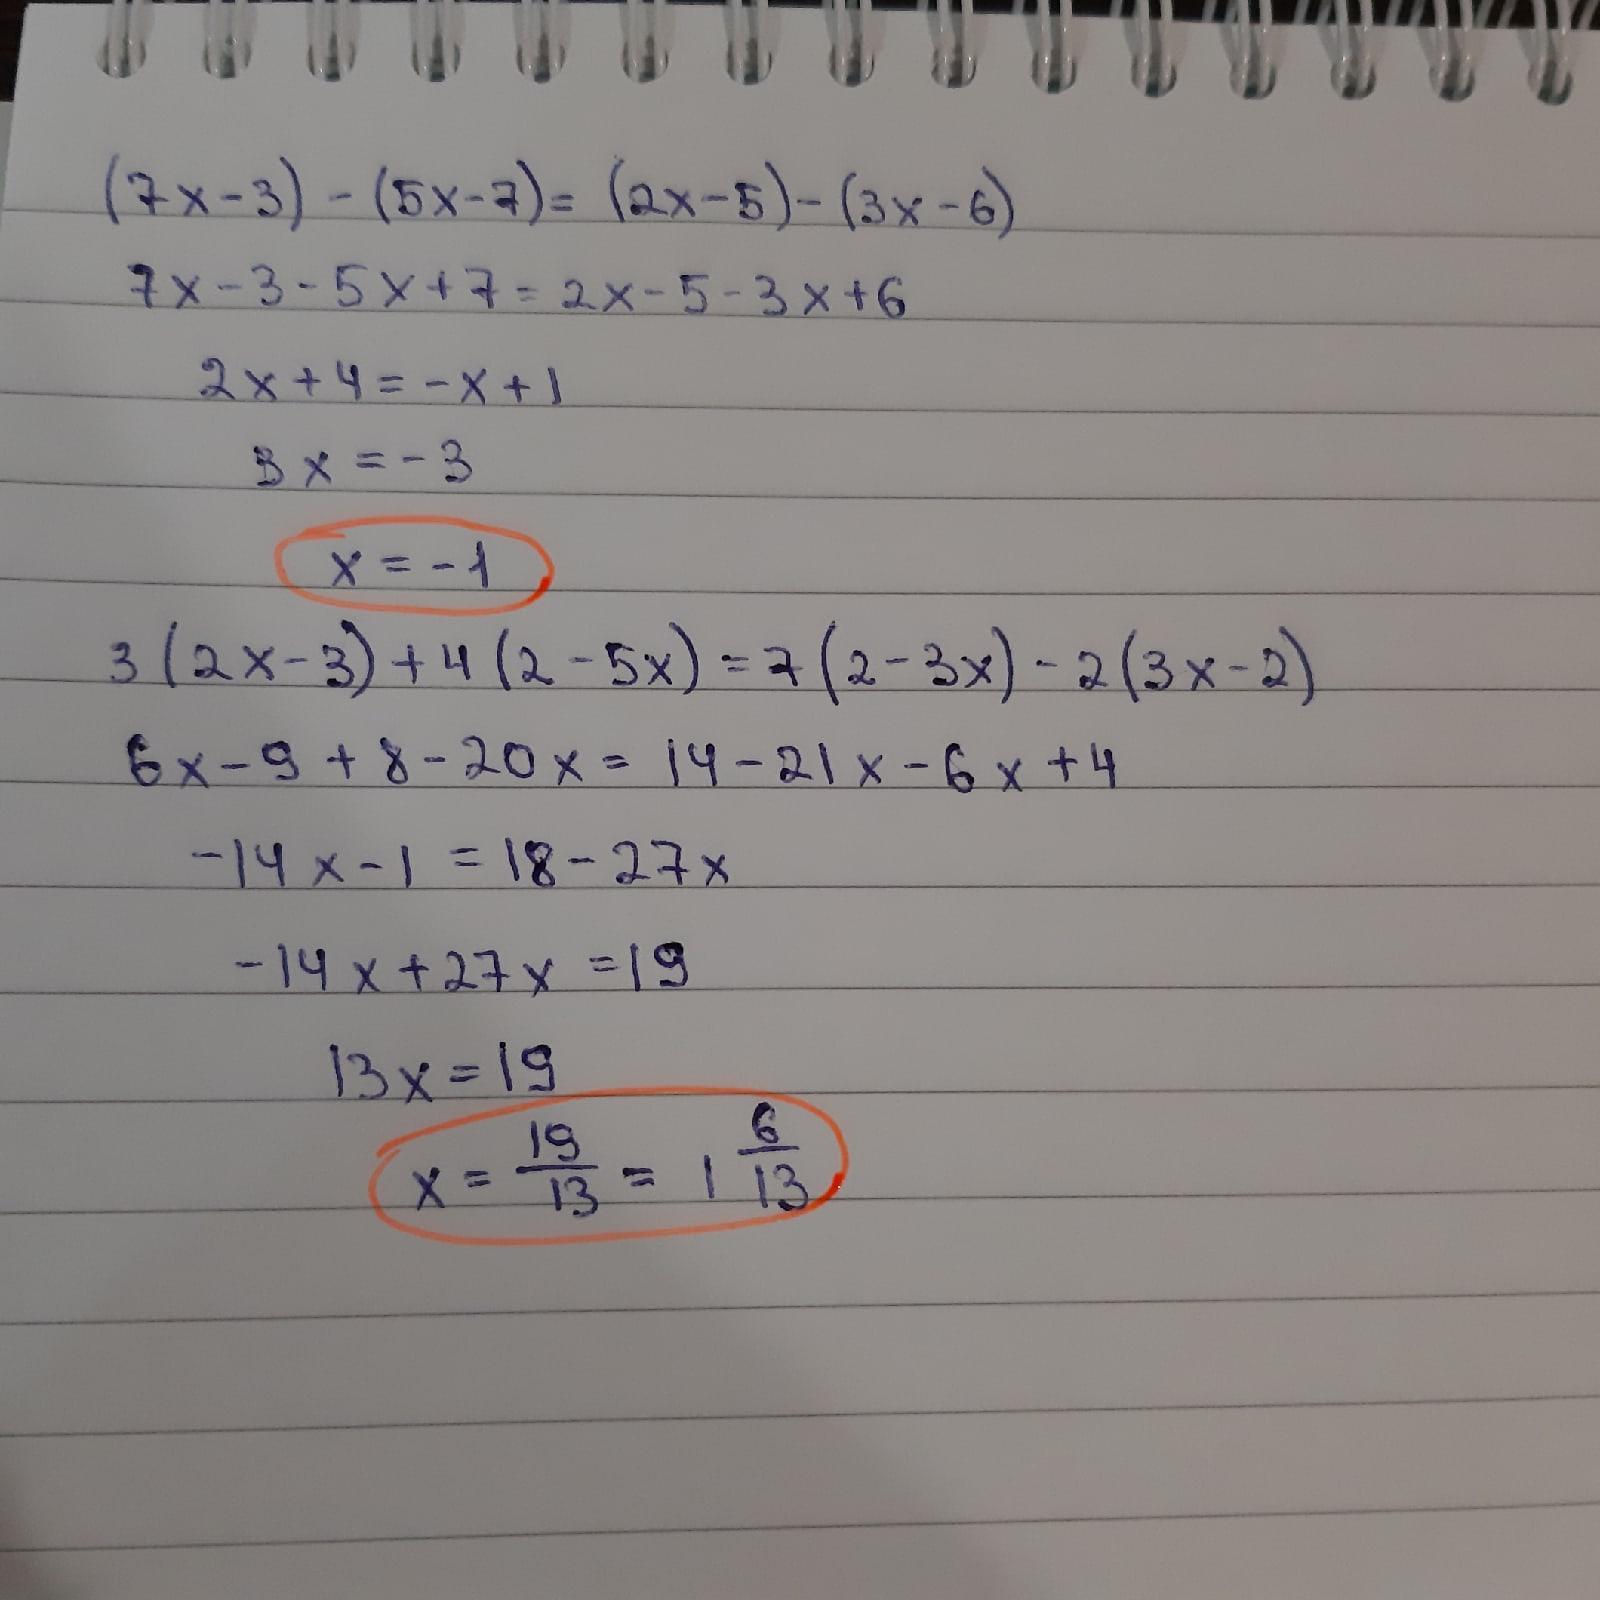 (7x-3)-(5x-7)=(2x-5)-(3x-6)
7x-3-5x+7=2x-5-3x+6
2x+4=-x+1
3x=-3
x=-1
3(2x-3)+4(2-5x)=7(2-3x)-2(3x-2)
6x-9+8-20x=14-21x-6x+4
-14x-1=18-27x
-14x+27x=19
13x=19
x=19/13=1 6/13